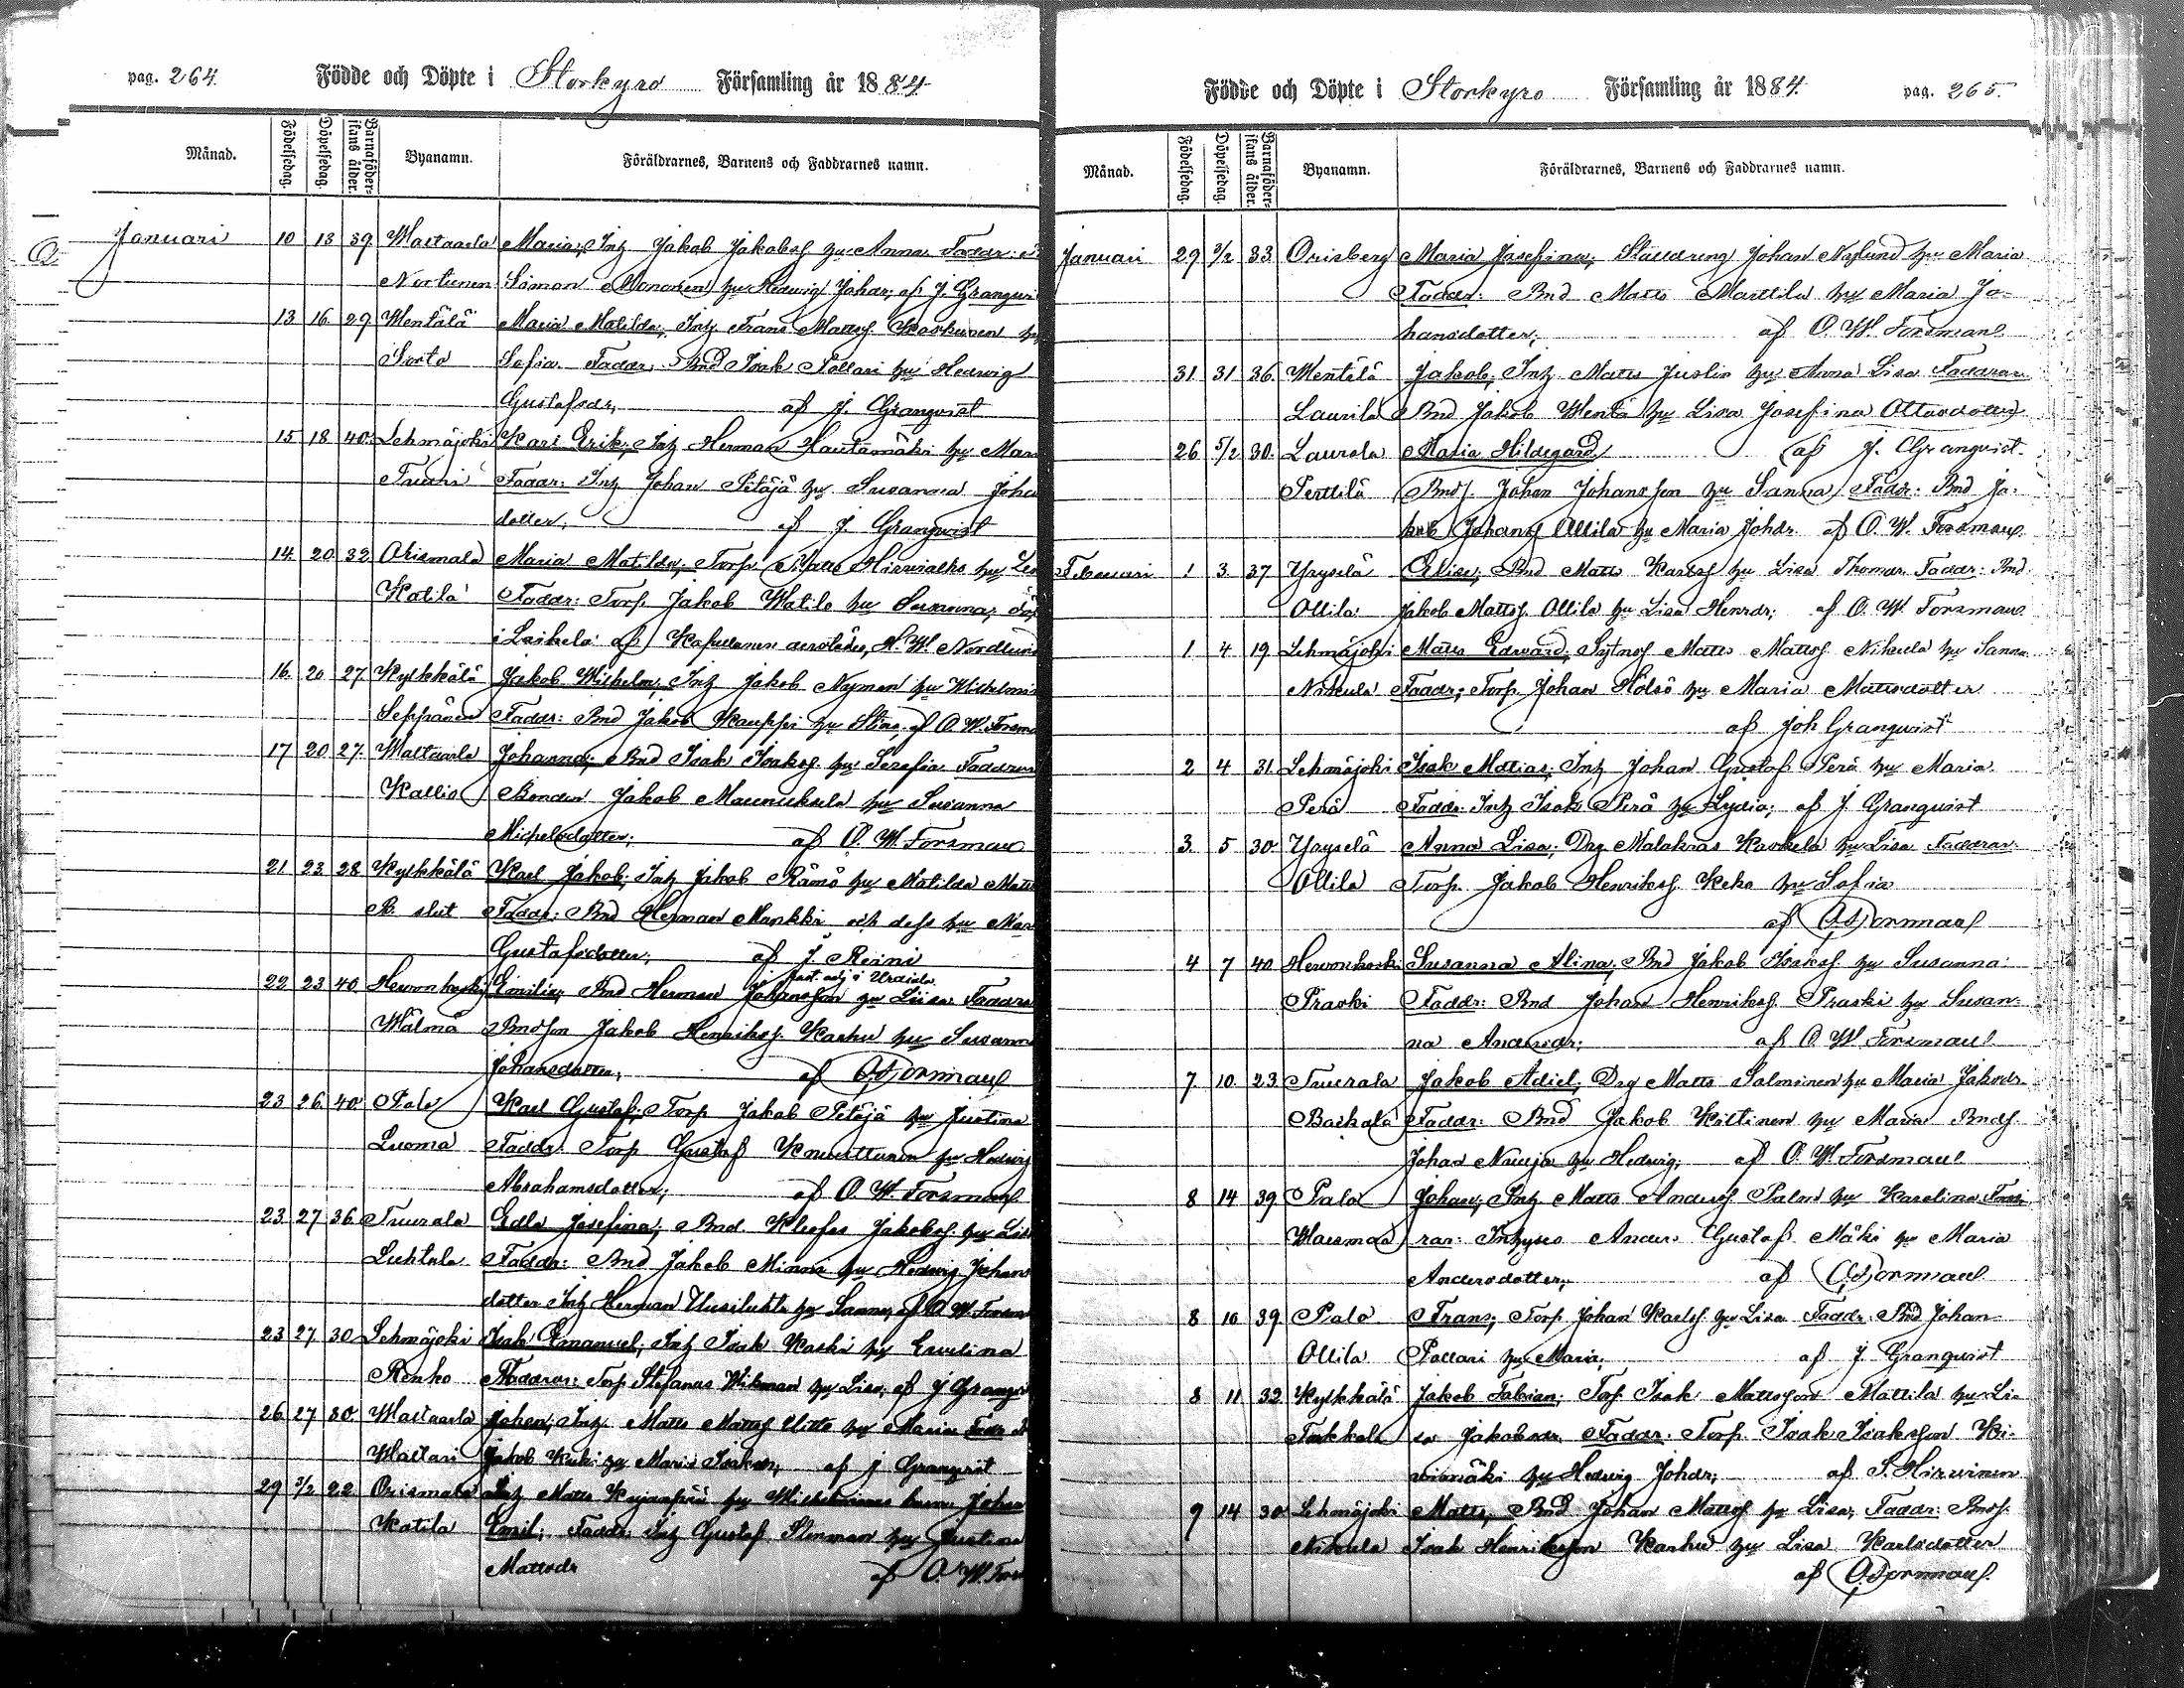 pag. 264. Födde och Döpte i Storkyro Församling år 1884.
Månad. Födelsedag. Döpelsedag. Barnaföderskans ålder. Byanamn. Föräldrarnes, Barnens och Faddrarnes namn.
Januari 10 13 39 Waltaarla Maria; Inh Jakob Jakobsf hu Anna Faddr:
Nortunen Simon Mononen hu Hedwig Johdr; af J. Granqvi
13 16 29 Wentälä Maria Matilda; Inh Frans Mattsf Koskinen hu
Sorto Sofia Faddr: Bnd Isak Pollari hu Hedwig
Gustafsdr; af J. Granqvist
15 18 40 Lehmäjoki Karl Erik; Inh Herman Hautamäki hu Mar
Truni Faddr: Inh Johan Pitäjä hu Susanna Joha
dotter; af J. Granqvist
14 20 32 Orismala Maria Matilda; Torp Matts Hirvialho hu
Katila Faddr: Torp. Jakob Katila hu Susanna,
i Laihela: af Kapellanen dersstädes, K. W. Nordlund
16 20 27 Kylkkälä Jakob Wilhelm; Inh Jakob Nyman hu Wilhelmi
Seppänen Faddr: Bnd Jakob Kauppi hu Stina, af O. W. Forsma
17 20 27 Waltaarla Johanna; Bnd Isak Isaksf hu Serafia Faddrar
Kallio Bonden Jakob Maunuksela hu Susanna
Michelsdotter; af O. W. Forsman
21 23 28 Kylkkälä Karl Jakob; Inh Jakob Rämö hu Matilda Matts
B. slut Faddr: Bnd Herman Munkki och dess hu Mar
Gustafsdotter; af J. Reini
past. adj i Urdiala
22 23 40 Hevonkoski Emilia; Bnd Herman Johansson hu Liisa Faddra
Wälmä Bndson Jakob Henriksf. Karhu hu Susann
Johansdotter; af O. W. Forsman
23 26 40 Palo Karl Gustaf; Torp Jakob Pitäjä hu Justina
Luoma Faddr: Torp Gustaf Kouvuttunen hu Hedwig
Abrahamsdotter; af O. W. Forsman
23 27 36 Tuurala Edla Josefina; Bnd. Kleofas Jakobsf. hu Lis
Luhtala Faddr: Bnd Jakob Minni hu Hedwig Johans
dotter Inh Herman Uusiluhta hu Sanna, af O. W. Forsm
23 27 30 Lehmäjoki Isak Emanuel; Inh Isak Kaski hu Evelina
Renko Faddrar: Torp Stefanus Wikman hu Lisa, af J Granqvi
26 27 30 Waltaarla Johan; Inh Matts Mattsf Uitto hu Maria Faddr
Waltari Jakob Kuki hu Maria Isaksdr, af J Granqvist
29 3/2 22 Orismala Inh Matts Kujanpää hu Wilhelminas barn Johan
Katila Emil; Faddr: Inh Gustaf Stenman hu Justina
Mattsdr af O. W. Fors
Födde och Döpte i Storkyro Församling år 1884. pag. 265.
Månad. Födelsedag. Döpelsedag. Barnaföderskans ålder. Byanamn. Föräldrarnes, Barnens och Faddrarnes namn.
Januari 29 3/2 33 Orisberg Maria Josefina; Stalldreng Johan Nylund hu Maria
Faddr: Bnd Matts Marttila hu Maria Jo-
hansdotter; af O. W. Forsman
31 31 36 Wentälä Jakob; Inh Matts Juslin hu Anna Lisa Faddrar
Laurila Bnd Jakob Wentä hu Lisa Josefina Ottosdotter
26 5/2 30 Laurola Maria Hildegard af J. Granqvist.
Perttilä Bndf. Johan Johansson hu Sanna, Faddr: Bnd Ja-
kob Johansf Ollila hu Maria Johdr. af O. W. Forsman
Februari 1 3 37 Yryselä Elise; Bnd Matts Karlsf hu Lisa Thomdr Faddr: Bnd
Ollila Jakob Mattsf. Ollila hu Lisa Henrdr; af O. W. Forsman
1 4 19 Lehmäjoki Matts Edward; Sytnsf Matts Mattsf Nikula hu Sanna
Nikula Faddr; Torp. Johan Hölsö hu Maria Mattsdotter
af Joh Granqvist
2 4 31 Lehmäjoki Isak Matias; Inh Johan Gustaf Perä hu Maria
Perä Faddr: Inh Isak Perä hu Lydia; af J. Granqvist
3 5 30 Yryselä Anna Lisa; Drg Malakias Karkela hu Lisa Faddrar
Ollila Torp. Jakob Henriksf. Keho hu Sofia
af O. W. Forsman
4 7 40 Hevonkoski Susanna Alina; Bnd Jakob Isaksf. hu Susanna
Praski Faddr: Bnd Johan Henriksf. Praski hu Susan-
na Andersdr; af O. W. Forsman
7 10 23 Tuurala Jakob Adiel; Drg Matts Salminen hu Maria Jakobdr
Backala Faddr: Bnd Jakob Kiltinen hu Maria Bndf.
Johan Nauja hu Hedwig; af O. W. Forsman
8 14 39 Palo Johan; Inh Matts Andersf Palm hu Karolina Fadd
Waismaa rar: Inhyses Anders Gustaf Mäki hu Maria
Andersdotter; af O. W. Forsman
8 10 39 Palo Frans; Torp. Johan Karlsf. hu Lisa Faddr: Bnd Johan
Ollila Pollari hu Maria; af J. Granqvist
8 11 32 Kylkkälä Jakob Fabian; Torp. Isak Mattsson Mattila hu Li-
Takkala sa Jakobsdr. Faddr: Torp. Isak Isaksson Ki-
vimäki hu Hedwig Johdr; af S. Hirvinen
9 14 30 Lehmäjoki Matts; Bnd Johan Mattsf hu Lisa, Faddr: Bndsf.
Nikula Isak Henriksson Karhu hu Lisa Karlsdotter
af O. W. Forsman